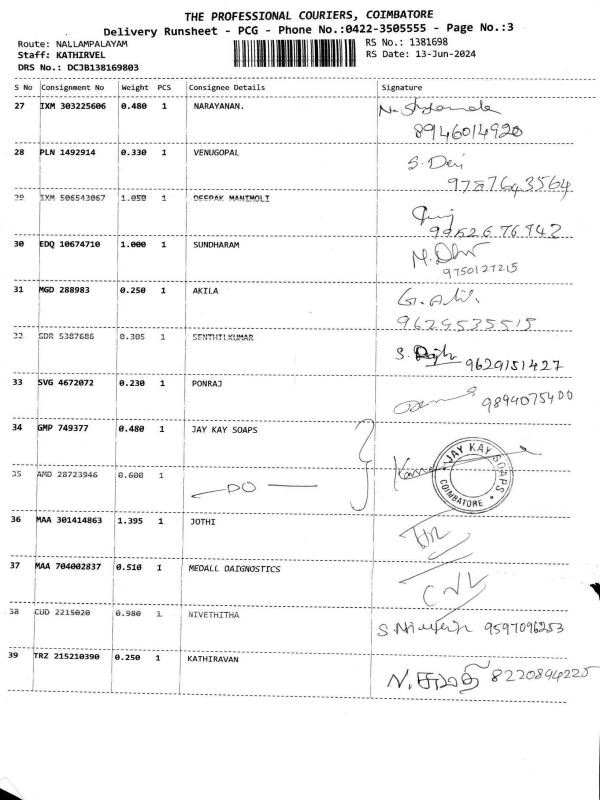 THE PROFESSIONAL COURIERS, COIMBATORE
Delivery Runsheet - PCG - Phone No.:0422-3505555 - Page No.:3
Route: NALLAMPALAYAM
RS No.: 1381698
Staff: KATHIRVEL
RS Date: 13-Jun-2024
DRS No.: DCJB138169803
S No Consignment No Weight PCS Consignee Details Signature
27 IXM 303225606 0.480 1 NARAYANAN.
8946014920
28 PLN 1492914 0.330 1 VENUGOPAL S. Devi
9787643564
29 IXM 506543067 1.050 1 DEEPAK MANIMOLI
99526 76942
30 EDQ 10674710 1.000 1 SUNDHARAM
9750127215
31 MGD 288983 0.250 1 AKILA
9629535515
32 GDR 5387686 0.305 1 SENTHILKUMAR
9629151427
33 SVG 4672072 0.230 1 PONRAJ
9894075400
34 GMP 749377 0.480 1 JAY KAY SOAPS
JAY KAY SOAPS
COIMBATORE
35 AMD 28723946 0.600 1 —DO—
36 MAA 301414863 1.395 1 JOTHI
37 MAA 704002837 0.510 1 MEDALL DAIGNOSTICS
38 CUD 2215020 0.980 1 NIVETHITHA
9597096253
39 TRZ 215210390 0.250 1 KATHIRAVAN
8220894225